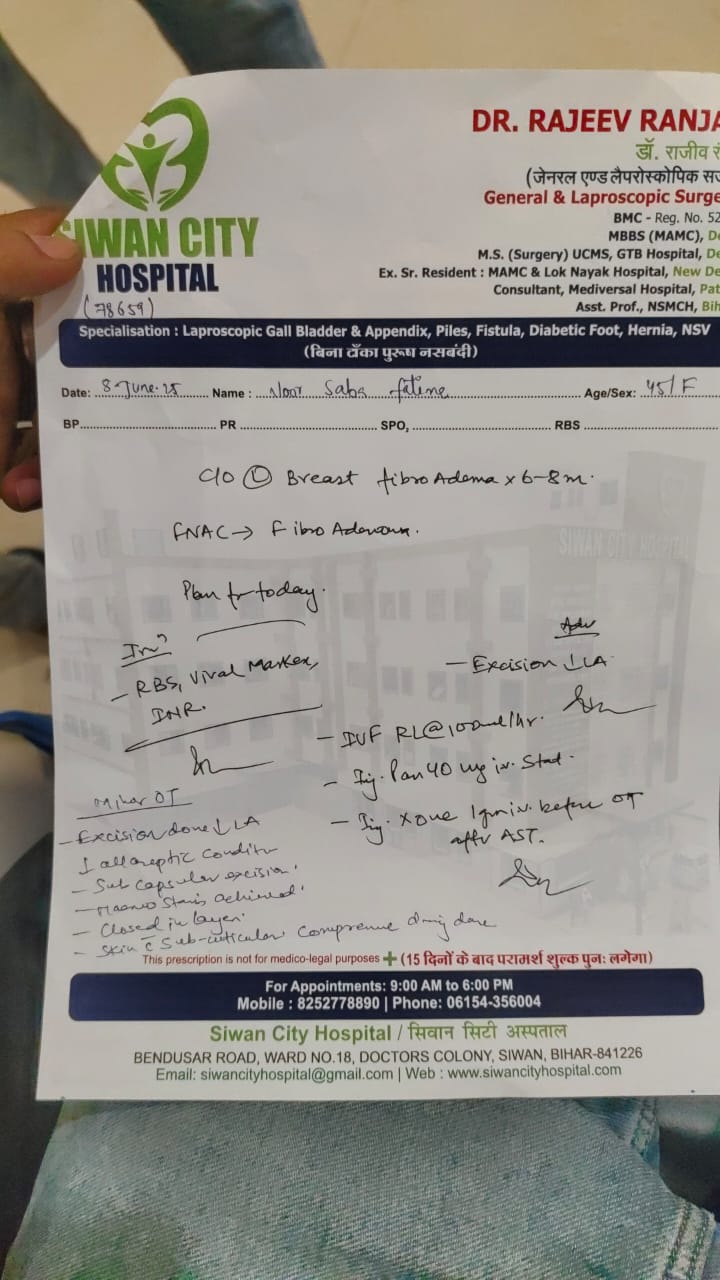 SIWAN CITY
HOSPITAL
(78659)
DR. RAJEEV RANJA
डॉ. राजीव रं
(जेनरल एण्ड लैपरोस्कोपिक सर्ज
General & Laproscopic Surge
BMC - Reg. No. 52
MBBS (MAMC), De
M.S. (Surgery) UCMS, GTB Hospital, De
Ex. Sr. Resident : MAMC & Lok Nayak Hospital, New De
Consultant, Mediversal Hospital, Pat
Asst. Prof., NSMCH, Bih
Specialisation : Laproscopic Gall Bladder & Appendix, Piles, Fistula, Diabetic Foot, Hernia, NSV
(बिना टाँका पुरूष नसबंदी)
Date: 8 June. 25 Name : Noor Saba fatime Age/Sex: 45/F
BP PR SPO, RBS
SIWAN CITY HOSPITAL
C/O (L) Breast fibroAdema x 6-8m.
FNAC → FibroAdenoma.
Plan for today.
Inv
- RBS, Viral Marker,
INR.
Adv
- Excision ↓ LA
- IVF RL@100ml/hr.
- Inj. Pan 40 mg iv. Stat.
- Inj. Xone 1gm iv. before OT
after AST.
Minor OT
- Excision done ↓ LA
- Sub capsular excision.
- achieved.
- Closed in layer.
- Skin c̄ Sub-cuticular
This prescription is not for medico-legal purposes + (15 दिनों के बाद परामर्श शुल्क पुनः लगेगा)
For Appointments: 9:00 AM to 6:00 PM
Mobile : 8252778890 | Phone: 06154-356004
Siwan City Hospital / सिवान सिटी अस्पताल
BENDUSAR ROAD, WARD NO.18, DOCTORS COLONY, SIWAN, BIHAR-841226
Email: siwancityhospital@gmail.com | Web : www.siwancityhospital.com